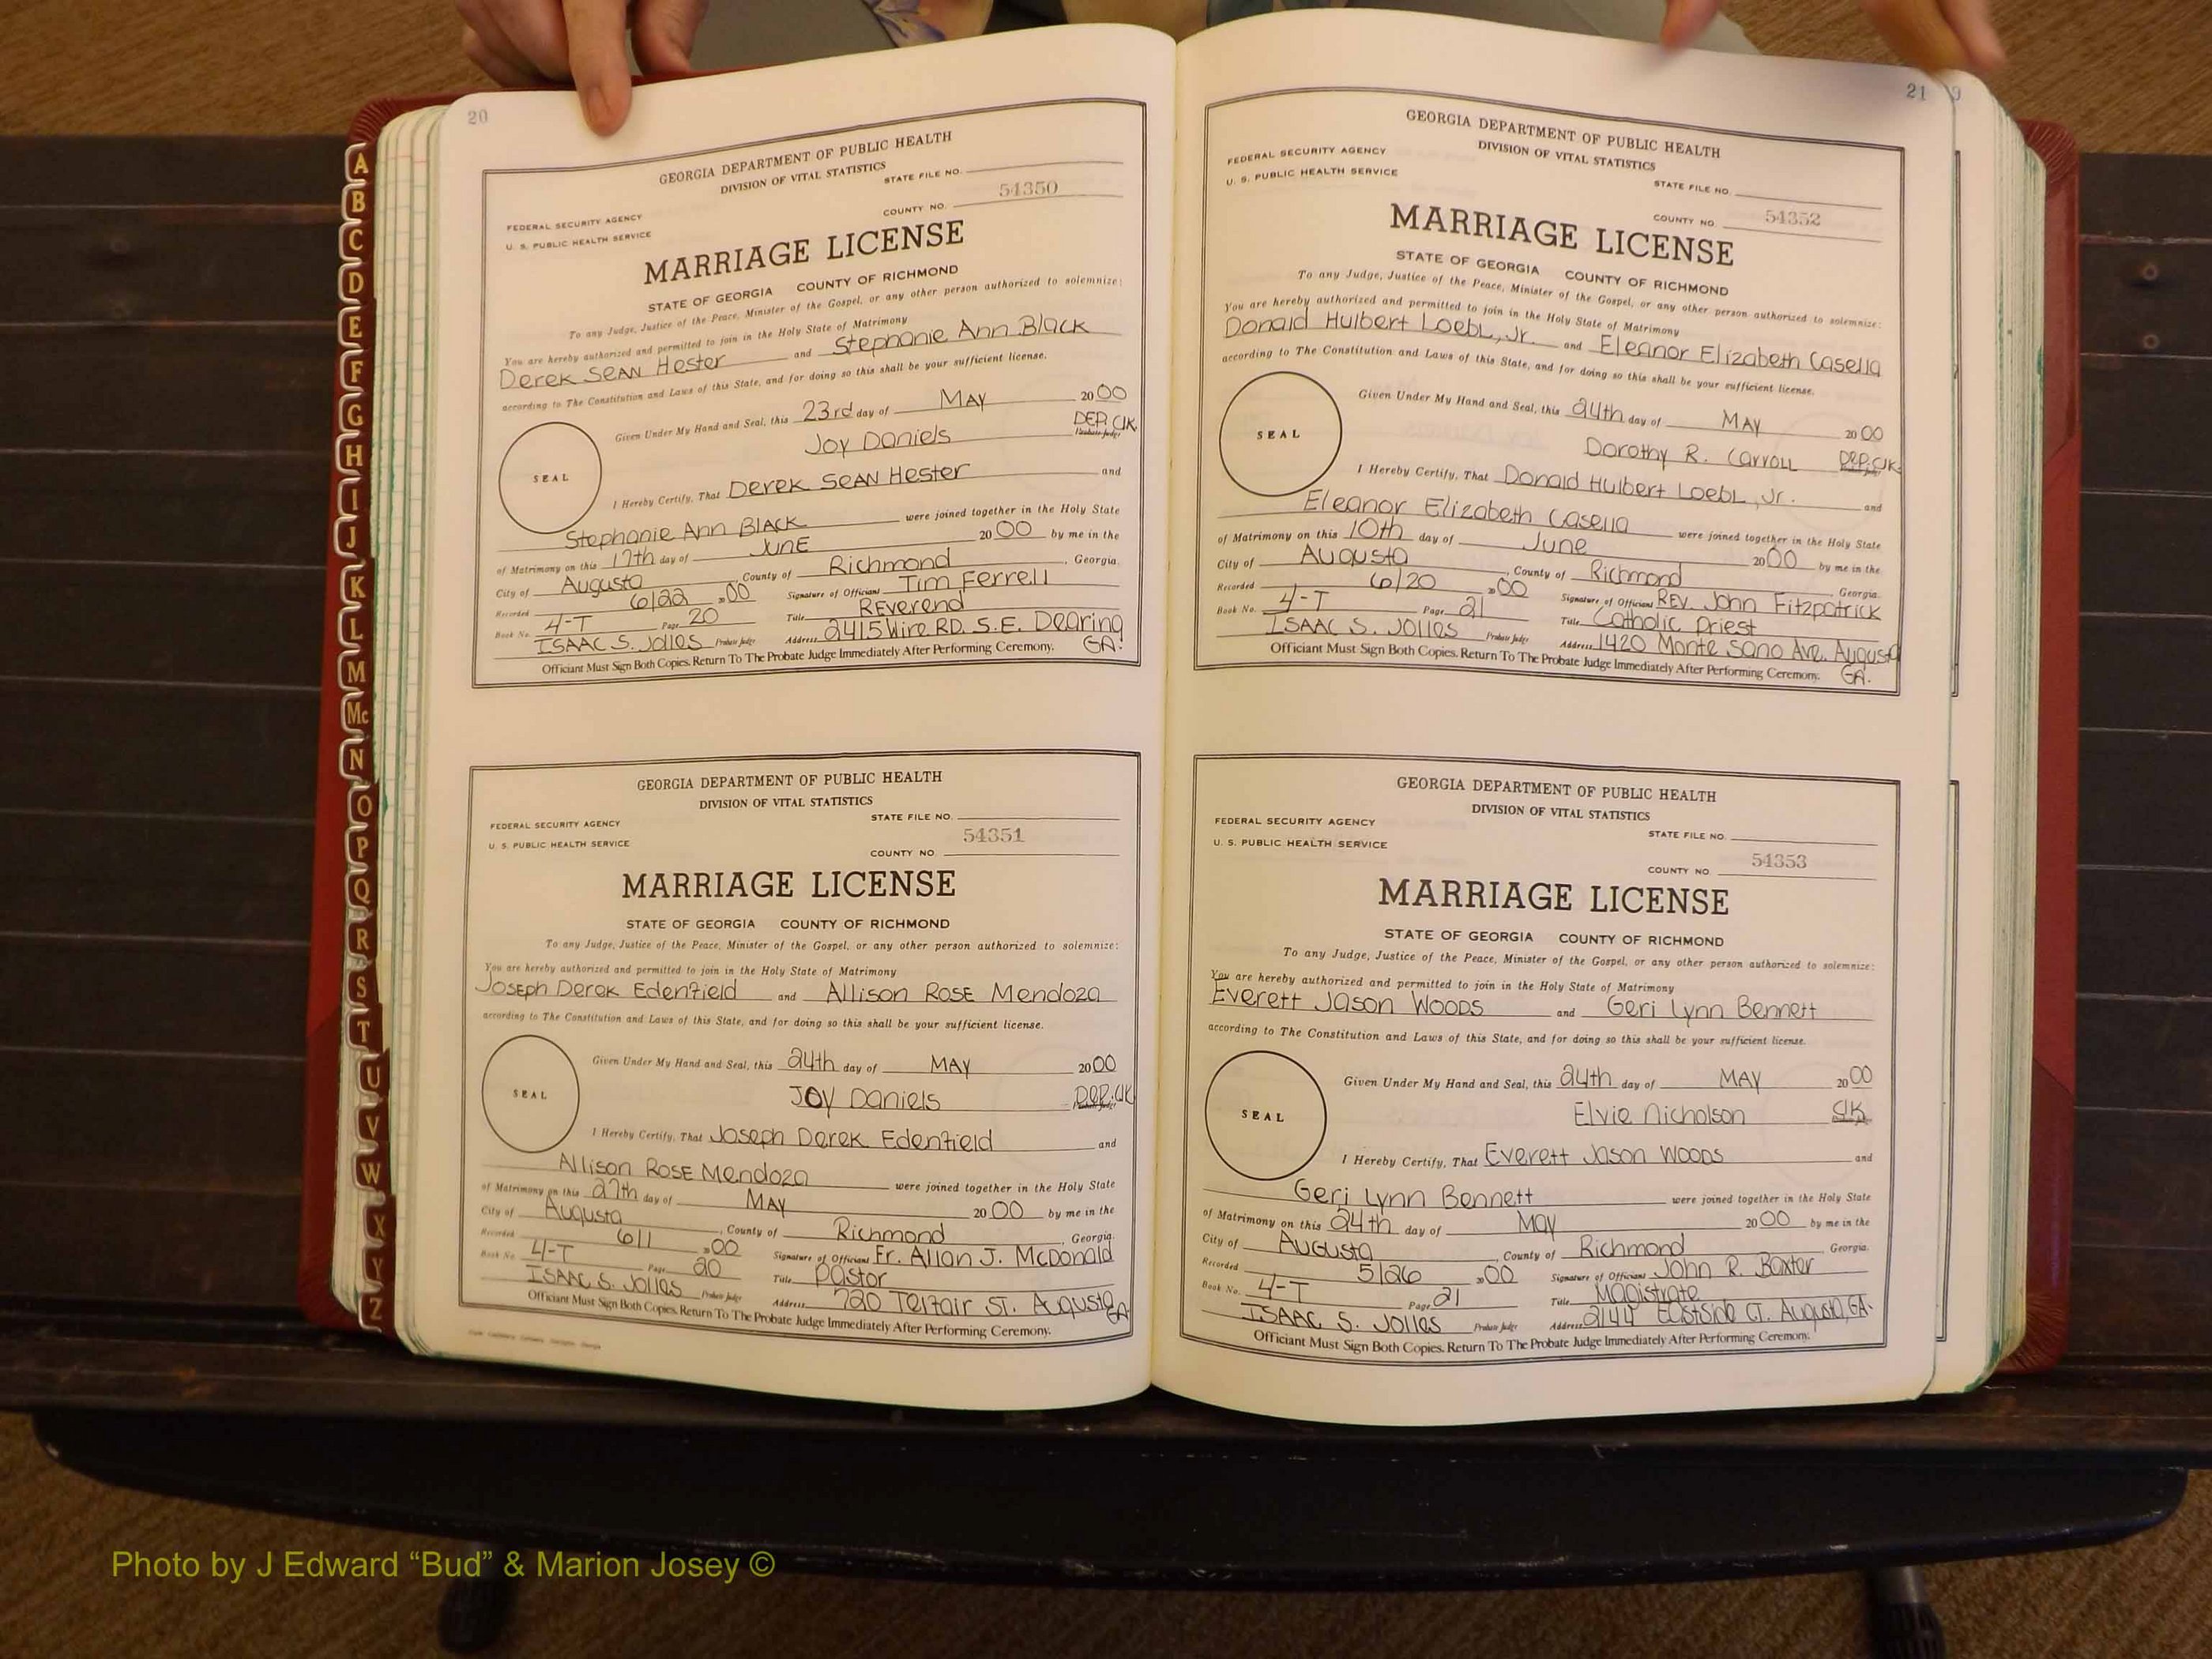 20
GEORGIA DEPARTMENT OF PUBLIC HEALTH
DIVISION OF VITAL STATISTICS
STATE FILE NO.
54350
FEDERAL SECURITY AGENCY
COUNTY NO.
U. S. PUBLIC HEALTH SERVICE
MARRIAGE LICENSE
STATE OF GEORGIA COUNTY OF RICHMOND
To any Judge, Justice of the Peace, Minister of the Gospel, or any other person authorized to solemnize:
You are hereby authorized and permitted to join in the Holy State of Matrimony
Derek Sean Hester and Stephanie Ann Black
according to The Constitution and Laws of this State, and for doing so this shall be your sufficient license.
Given Under My Hand and Seal, this 23rd day of MAY 2000
Joy Daniels DEP. Clk.
SEAL
I Hereby Certify, That Derek Sean Hester and
Stephanie Ann Black were joined together in the Holy State
of Matrimony on this 17th day of JUNE 2000 by me in the
City of Augusta County of Richmond, Georgia.
Recorded 6/22 2000 Signature of Officiant Tim Ferrell
Book No. 4-T Page 20 Title Reverend
ISAAC S. Jolles Probate Judge Address 2415 Wire RD. S.E. Dearing GA.
Officiant Must Sign Both Copies. Return To The Probate Judge Immediately After Performing Ceremony.
GEORGIA DEPARTMENT OF PUBLIC HEALTH
DIVISION OF VITAL STATISTICS
STATE FILE NO.
FEDERAL SECURITY AGENCY
54351
U. S. PUBLIC HEALTH SERVICE
COUNTY NO
MARRIAGE LICENSE
STATE OF GEORGIA COUNTY OF RICHMOND
To any Judge, Justice of the Peace, Minister of the Gospel, or any other person authorized to solemnize:
You are hereby authorized and permitted to join in the Holy State of Matrimony
Joseph Derek Edenfield and Allison Rose Mendoza
according to The Constitution and Laws of this State, and for doing so this shall be your sufficient license.
Given Under My Hand and Seal, this 24th day of MAY 2000
Joy Daniels DEP. Clk
SEAL
I Hereby Certify, That Joseph Derek Edenfield and
Allison Rose Mendoza were joined together in the Holy State
of Matrimony on this 27th day of MAY 2000 by me in the
City of Augusta, County of Richmond, Georgia.
Recorded 6/1 2000 Signature of Officiant Fr. Allan J. McDonald
Book No 4-T Page 20 Title Pastor
ISAAC S. Jolles Probate Judge Address 720 Telfair St. Augusta GA
Officiant Must Sign Both Copies. Return To The Probate Judge Immediately After Performing Ceremony.
21
9
GEORGIA DEPARTMENT OF PUBLIC HEALTH
DIVISION OF VITAL STATISTICS
FEDERAL SECURITY AGENCY
U. S. PUBLIC HEALTH SERVICE
STATE FILE NO.
COUNTY NO. 54352
MARRIAGE LICENSE
STATE OF GEORGIA COUNTY OF RICHMOND
To any Judge, Justice of the Peace, Minister of the Gospel, or any other person authorized to solemnize:
You are hereby authorized and permitted to join in the Holy State of Matrimony
Donald Hulbert Loebl, Jr. and Eleanor Elizabeth Casella
according to The Constitution and Laws of this State, and for doing so this shall be your sufficient license.
Given Under My Hand and Seal, this 24th day of MAY 2000
SEAL
Dorothy R. Carroll Dep. Clk.
I Hereby Certify, That Donald Hulbert Loebl, Jr. and
Eleanor Elizabeth Casella were joined together in the Holy State
of Matrimony on this 10th day of June 2000 by me in the
City of Augusta, County of Richmond Georgia.
Recorded 6/20 2000 Signature of Officiant REV. John Fitzpatrick
Book No. 4-T Page 21 Title Catholic Priest
ISAAC S. Jolles Probate Judge Address 1420 Monte Sano Ave. Augusta GA.
Officiant Must Sign Both Copies. Return To The Probate Judge Immediately After Performing Ceremony.
GEORGIA DEPARTMENT OF PUBLIC HEALTH
DIVISION OF VITAL STATISTICS
FEDERAL SECURITY AGENCY
STATE FILE NO.
U. S. PUBLIC HEALTH SERVICE
COUNTY NO. 54353
MARRIAGE LICENSE
STATE OF GEORGIA COUNTY OF RICHMOND
To any Judge, Justice of the Peace, Minister of the Gospel, or any other person authorized to solemnize:
You are hereby authorized and permitted to join in the Holy State of Matrimony
Everett Jason Woods and Geri Lynn Bennett
according to The Constitution and Laws of this State, and for doing so this shall be your sufficient license.
Given Under My Hand and Seal, this 24th day of MAY 2000
SEAL
Elvie Nicholson Clk
I Hereby Certify, That Everett Jason Woods and
Geri Lynn Bennett were joined together in the Holy State
of Matrimony on this 24th day of May 2000 by me in the
City of Augusta, County of Richmond Georgia.
Recorded 5/26 2000 Signature of Officiant John R. Baxter
Book No. 4-T Page 21 Title Magistrate
ISAAC S. Jolles Probate Judge Address 2144 Eastside CT. Augusta, GA.
Officiant Must Sign Both Copies. Return To The Probate Judge Immediately After Performing Ceremony.
A
B
C
D
E
F
G
H
I
J
K
L
M
Mc
N
O
P
Q
R
S
T
U
V
W
X
Y
Z
Photo by J Edward “Bud” & Marion Josey ©